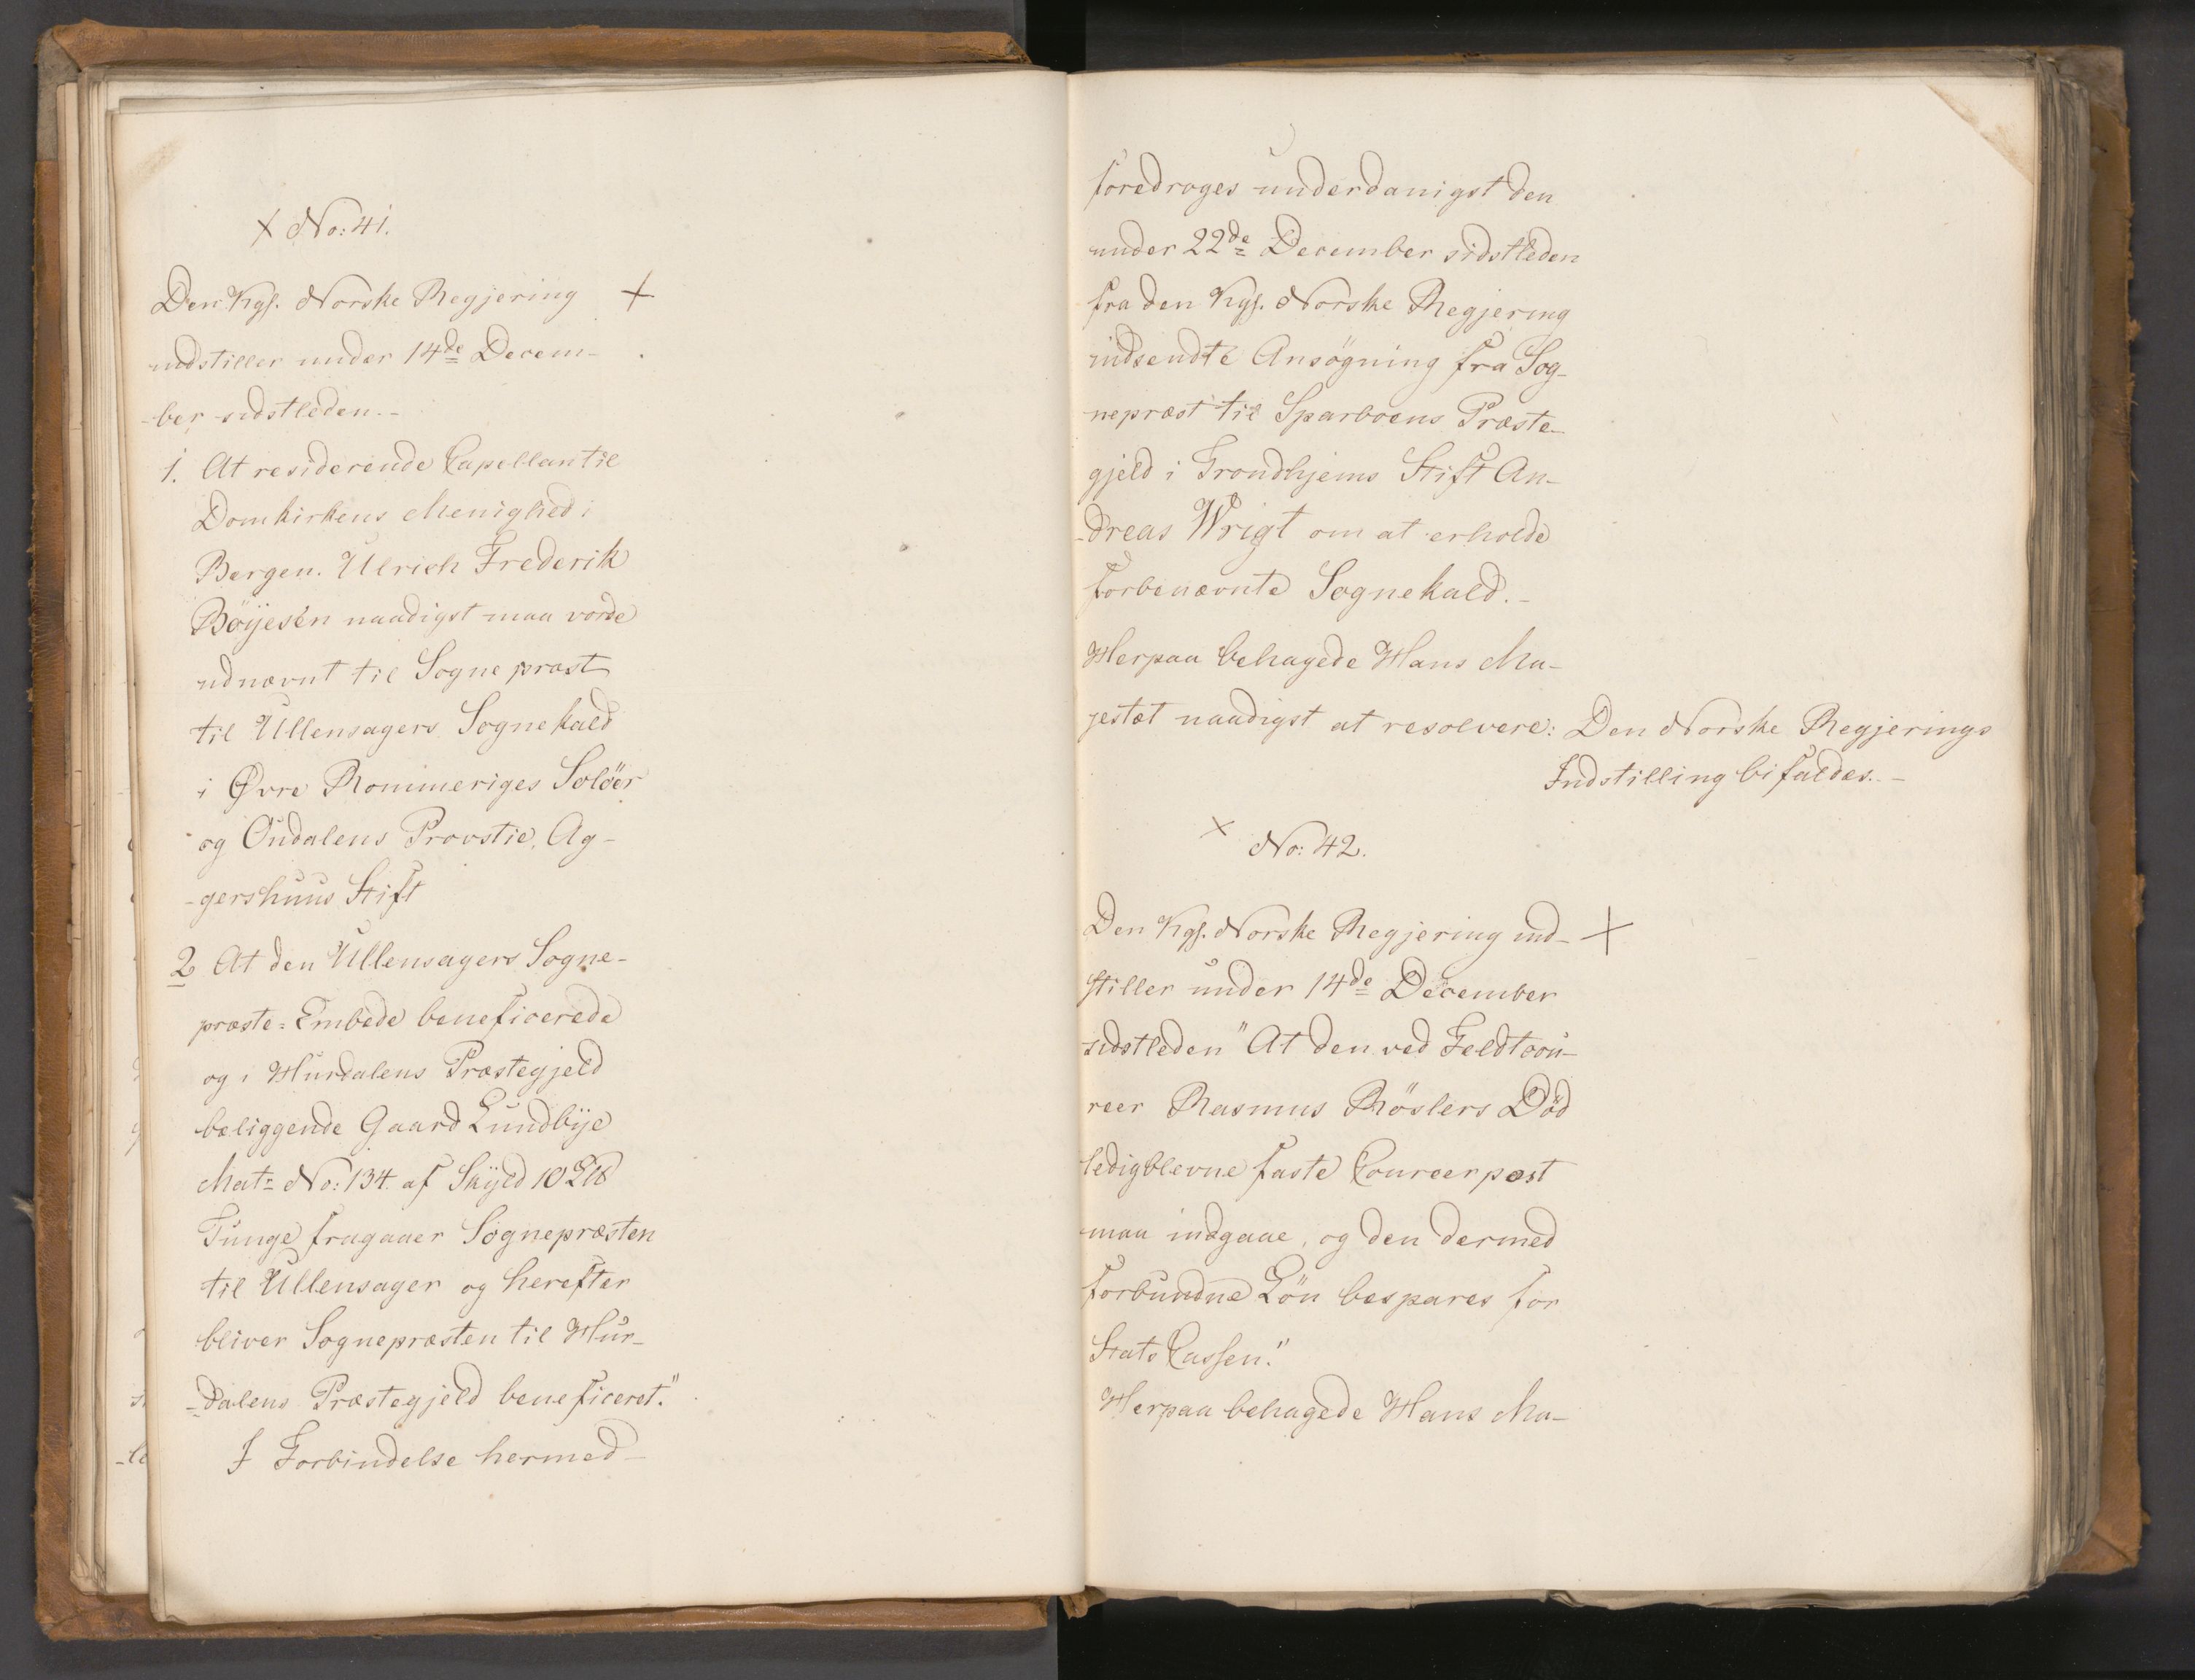 + No: 41.
Den Kgl. Norske Regjering +
indstiller under 14de Decem-
-ber sidstleden.-
1. At residerende Capellan til
Domkirkens Menighed i
Bergen. Ulrich Frederik
Böÿesen naadigst maa vorde
udnævnt til Sognepræst
til Ullensagers Sognekald
i Øvre Rommeriges Solöer
og Oudalens Provstie, Ag-
-gershuus Stift
2 At den Ullensagers Sogne-
præste=Embede beneficerede
og i Hurdalens Præstegjeld
beliggende Gaard Lundbÿe
Mat= No: 134. af Skÿld 10 L℔
Tunge fragaaer Sognepræsten
til Ullensager og herefter
bliver Sognepræsten til Hur-
-dalens Præstegjeld beneficeret."
I Forbindelse hermed-
foredroges underdanigst den
under 22de December sidstleden
fra den Kgl. Norske Regjering
indsendte Ansögning fra Sog-
nepræst til Sparboens Præste-
gjeld i Trondhjems Stift An-
-dreas Wrigt om at erholde
forbenævnte Sognekald.-
Herpaa behagede Hans Ma-
jestæt naadigst at resolvere: Den Norske Regjerings
Indstilling bifaldes.-
+ No: 42.
Den Kgl. Norske Regjering ind- +
stiller under 14de December
sidstleden "At den ved Feldtcou-
reer Rasmus Röslers Död
ledigblevne faste Coureerpost
maa indgaae, og den dermed
forbundne Lön bespares for
Stats Cassen."
Herpaa behagede Hans Ma-